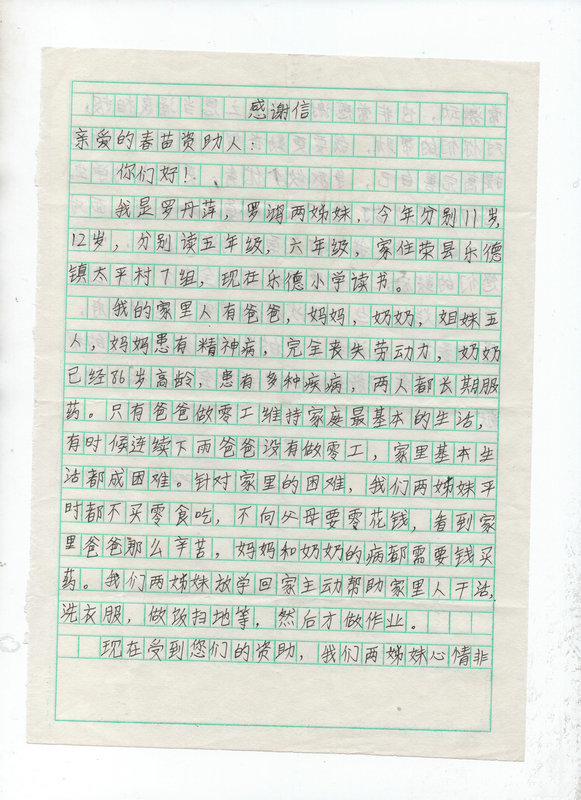 感谢信
亲爱的春苗资助人:
你们好!
我是罗丹萍,罗鸿两姊妹,今年分别11岁,
12岁,分别读五年级,六年级,家住荣县乐德
镇太平村7组,现在乐德小学读书。
我的家里人有爸爸,妈妈,奶奶,姐妹五
人,妈妈患有精神病,完全丧失劳动力,奶奶
已经86岁高龄,患有多种疾病,两人都长期服
药。只有爸爸做零工维持家庭最基本的生活,
有时候连续下雨爸爸没有做零工,家里基本生
活都成困难。针对家里的困难,我们两姊妹平
时都不买零食吃,不向父母要零花钱,看到家
里爸爸那么辛苦,妈妈和奶奶的病都需要钱买
药。我们两姊妹放学回家主动帮助家里人干活,
洗衣服,做饭扫地等,然后才做作业。
现在受到您们的资助,我们两姊妹心情非